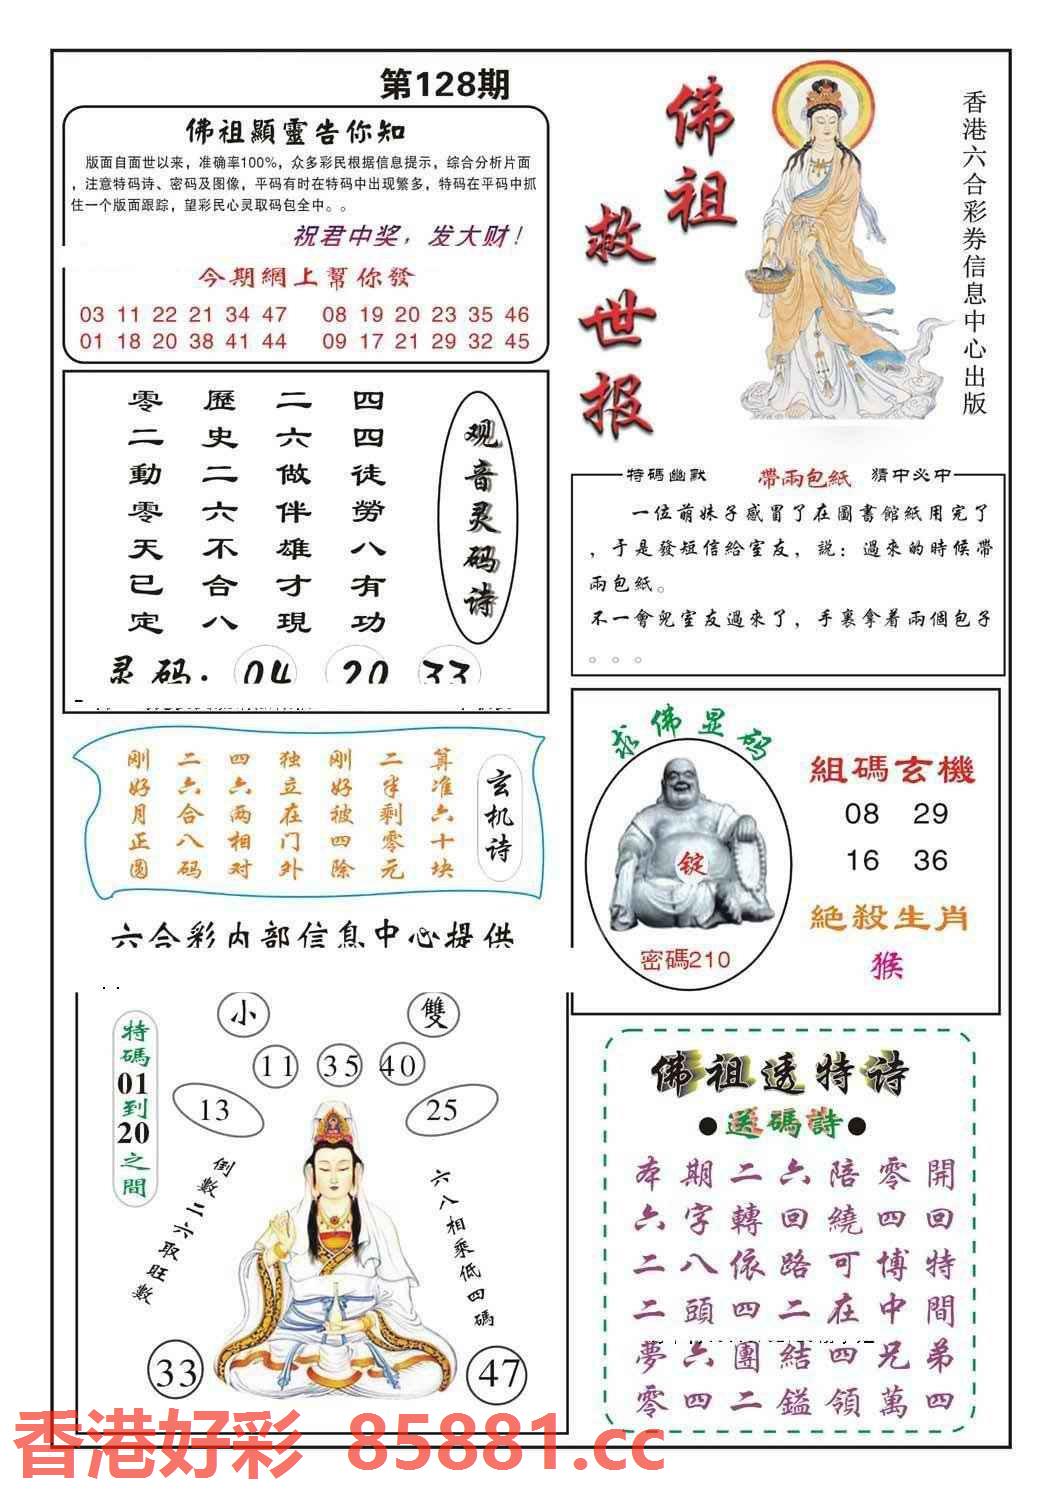 第128期
佛祖顯靈告你知
版面自面世以来，准确率100%，众多彩民根据信息提示，综合分析片面
，注意特码诗、密码及图像，平码有时在特码中出现繁多，特码在平码中抓
住一个版面跟踪，望彩民心灵取码包全中。。
祝君中奖，发大财！
今期網上幫你發
03 11 22 21 34 47 08 19 20 23 35 46
01 18 20 38 41 44 09 17 21 29 32 45
佛祖
救世报
香港六合彩券信息中心出版
观音灵码诗
四四徒勞八有功
二六做伴雄才現
歷史二六不合八
零二動零天已定
灵码：04 20 33
特碼幽默 帶兩包紙 猜中必中
一位萌妹子感冒了在圖書館紙用完了
，于是發短信給室友，説：過來的時候帶
兩包紙。
不一會兒室友過來了，手裏拿着兩個包子
。。。
玄机诗
算准六十块
二半剩零元
刚好被四除
独立在门外
四六两相对
二六合八码
刚好月正圆
六合彩内部信息中心提供
求佛显码
锭
密碼210
組碼玄機
08 29
16 36
絕殺生肖
猴
特碼01到20之間
小 雙
11 35 40
13 25
倒數二六取旺數
六八相乘低四碼
33 47
佛祖透特诗
●送碼詩●
本期二六陪零開
六字轉回繞四回
二八依路可博特
二頭四二在中間
夢六團結四兄弟
零四二鎰領萬四
香港好彩 85881.cc